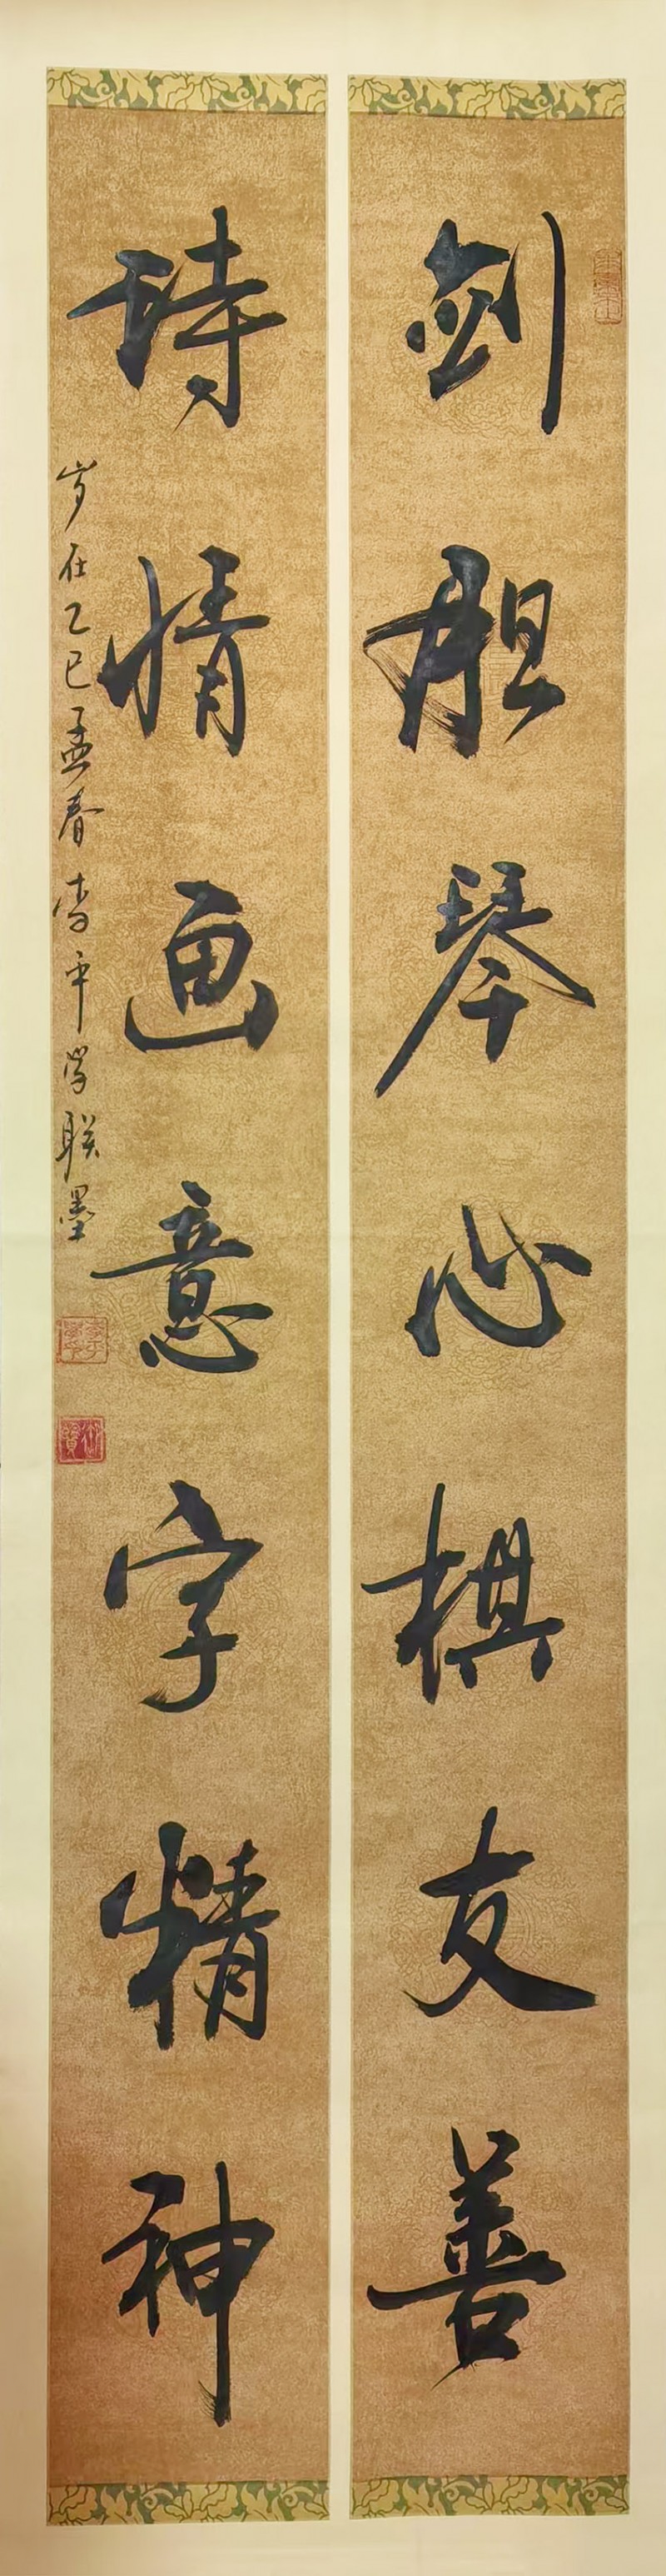 剑胆琴心棋友善
诗情画意字精神
岁在乙巳孟春李平学联墨